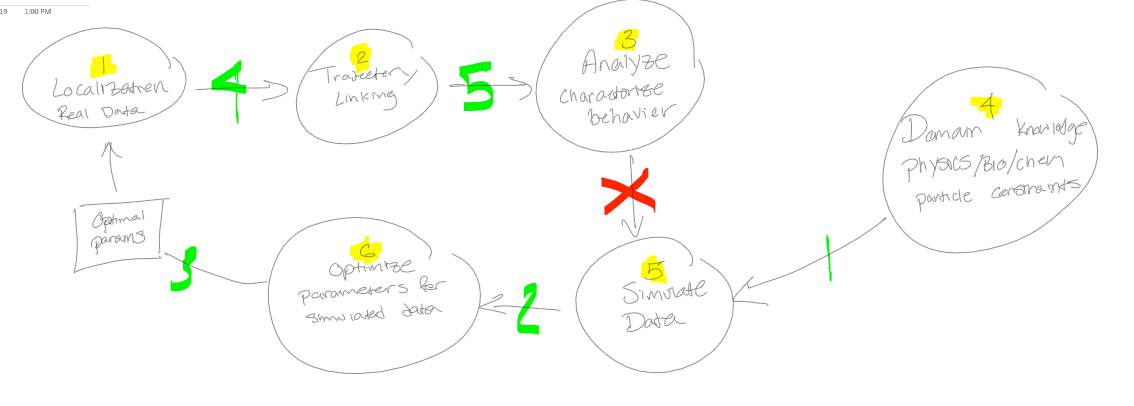 19 1:00 PM
1
Localization
Real Data
4
2
Trajectory
Linking
5
3
Analyze
characterize
behavior
X
4
Domain knowledge
Physics/Bio/chem
particle constraints
1
5
Simulate
Data
2
6
Optimize
parameters for
simulated data
3
Optimal
params